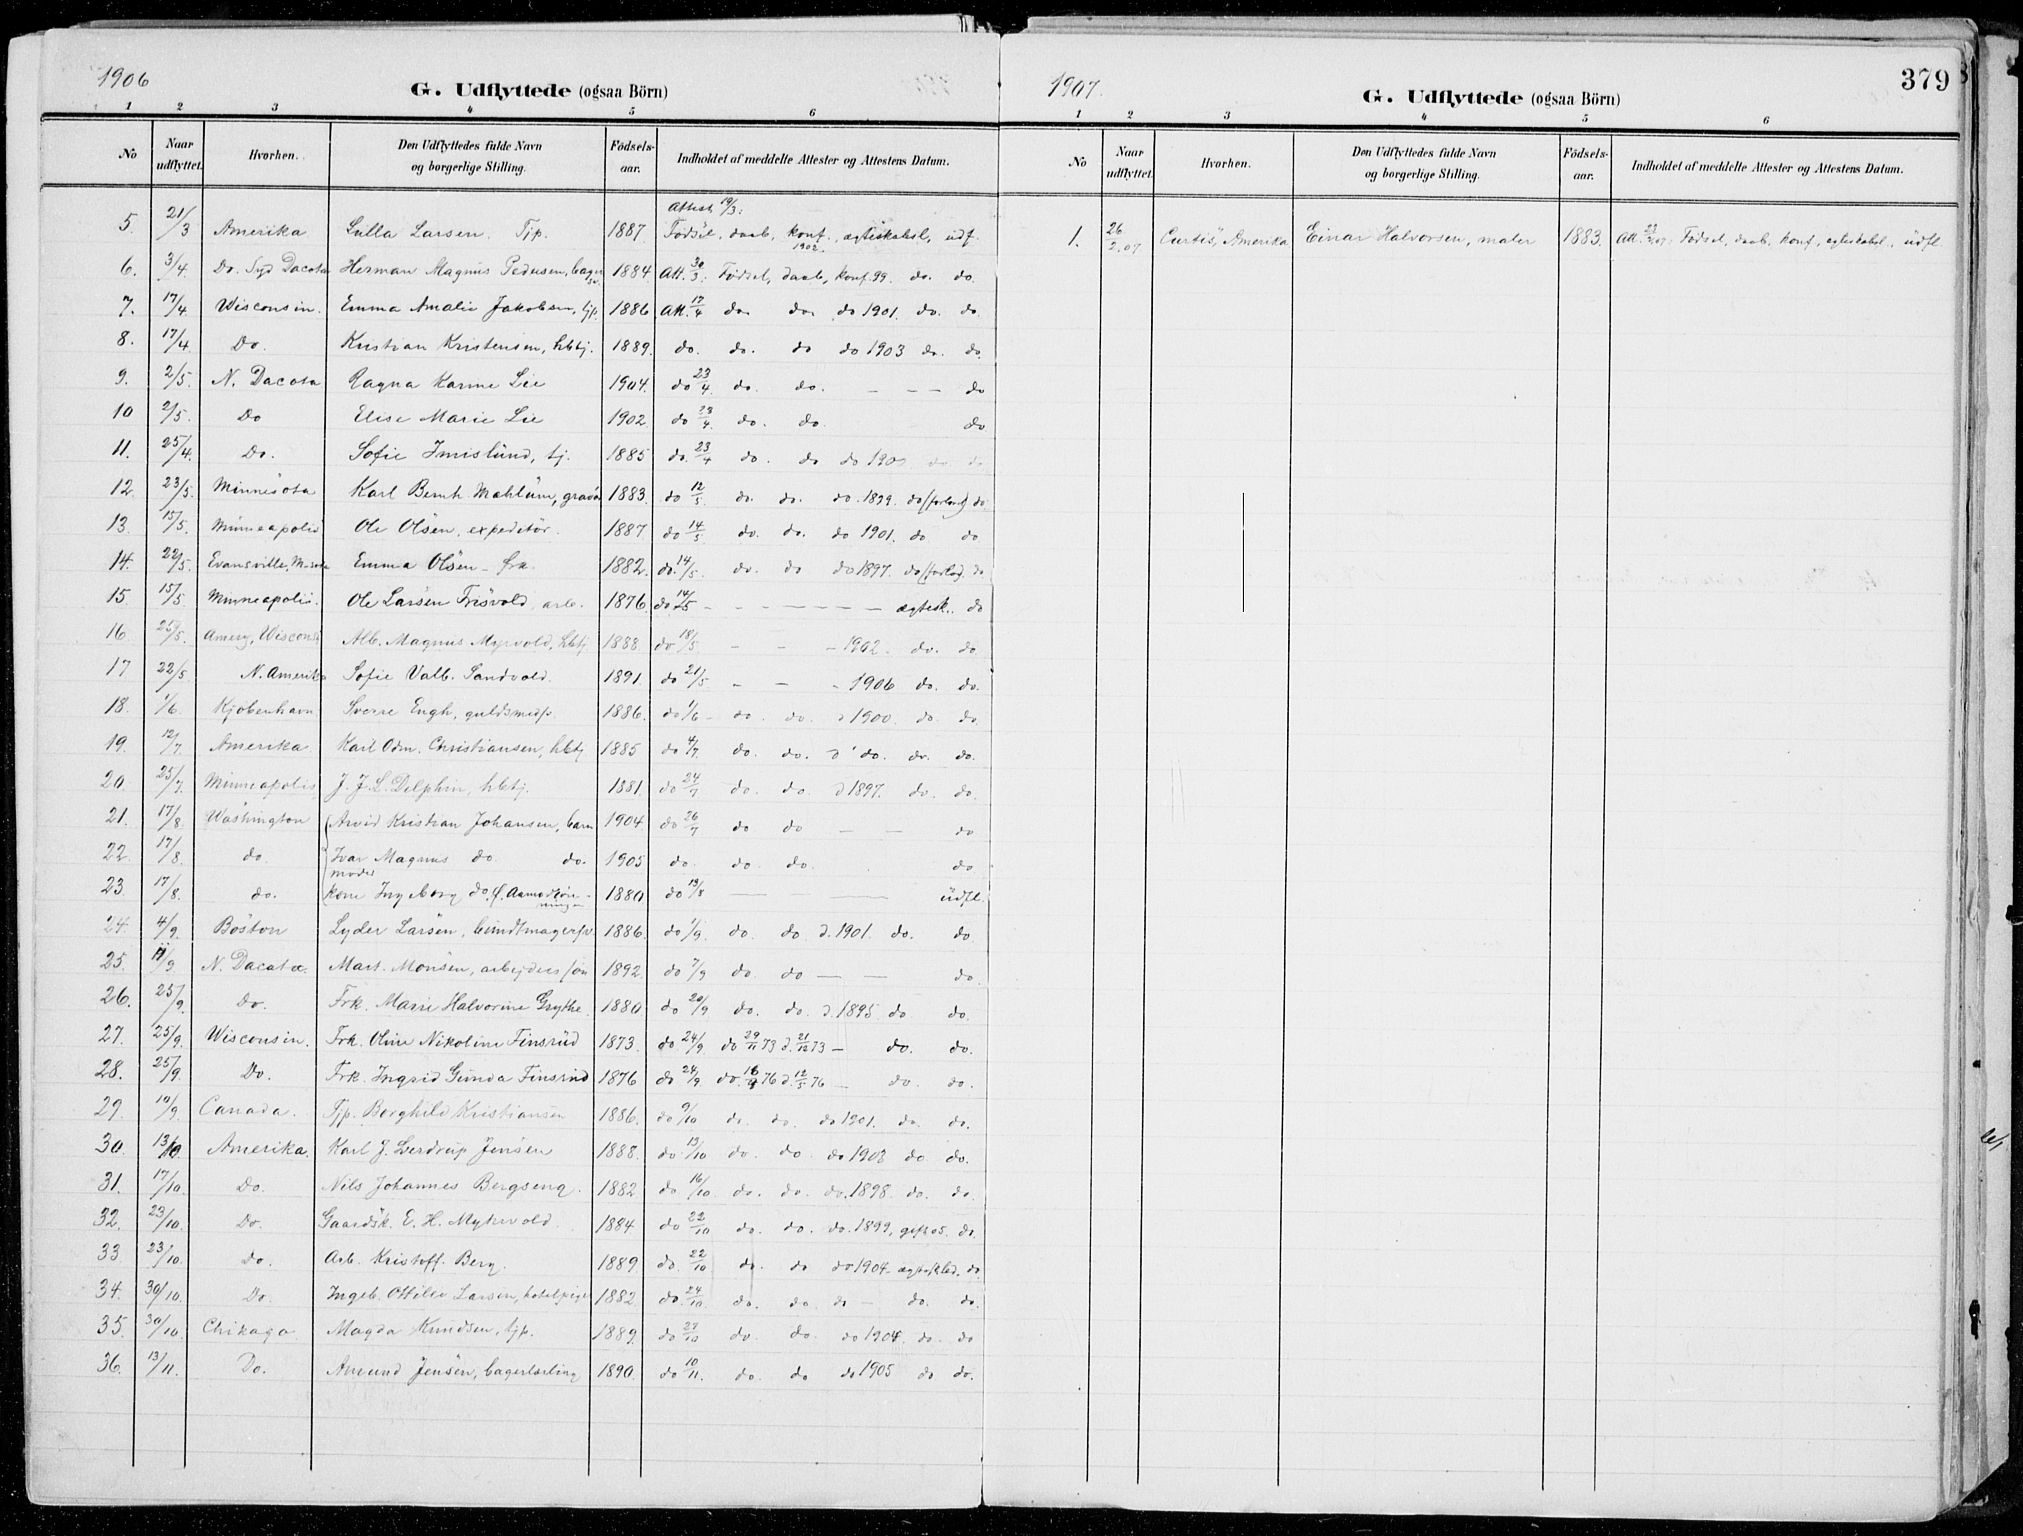 1906
G. Udflyttede (ogsaa Börn)
1 2 3 4 5 6
No Naar udflyttet. Hvorhen. Den Udflyttedes fulde Navn og borgerlige Stilling. Födsels-aar. Indholdet af meddelte Attester og Attestens Datum.
Attest 19/3:
5. 21/3 Amerika Lulla Larsen. Tjp. 1887. Födsel, daab, konf. 1902, ægteskabsl, udf.
6. 3/4. Do. Syd Dacota Herman Magnus Pedersen, bager sv. 1884 Att. 30/3: Födsel, daab, konf. 99. do. do.
7. 17/4 Wisconsin. Emma Amalie Jakobsen, tjp. 1886 Att. 17/4 do. do. do 1901. do. do.
8. 17/4 Do. Kristian Kristensen, hbtj. 1889. do. do. do do 1903 do. do.
9. 2/5. N. Dacota Ragna Karine Lie 1904. do 23/4 do. do. — — — do
10 2/5. Do Elise Marie Lie 1902. do 23/4. do. do. do
11. 25/4. Do. Sofie Imislund, tj. 1885 do. 23/4 do. do do do. do
12. 23/5. Minnesota Karl Bernh. Mahlum, 1883. do 12/5 do. do. do. 1899. do (forlov) do
13. 15/5. Minneapolis Ole Olsen, expeditör. 1887 do 14/5 do. do. do 1901. do do
14. 22/5. Evansville, Minesota Emma Olsen - frk. 1882. do. 14/5. do. do do 1897. do (forlov). do
15. 15/5 Minneapolis. Ole Larsen Trösvold, arb. 1876. do 14/5 — — — — — — ægtesk.. do
16. 25/5. Amery, Wisconsi Alb. Magnus Myrvold, hbtj. 1888. do 18/5. - - - 1902. do. do.
17 22/5 N. Amerika Sofie Valb. Sandvold. 1891. do 21/5 - - - 1906 do. do.
18. 1/6. Kjøbenhavn Sverre Engh, guldsmedsv. 1886. do 1/6 - do. do. d 1900. do. do.
19. 12/7. Amerika Karl Odm. Christiansen, hbtj 1885 do 4/7 do. do. d do. do. do.
20. 25/7. Minneapolis J. J. L. Delphin, hbtj. 1881. do 24/7 do. do. d 1897. do. do.
21. 17/8 Washington Arvid Kristian Johansen, barn 1904. do 26/7 do do — — do
22. 17/8. do. Ivar Magnus do. do. 1905 do. do. do. do
moder
23 17/8. do. kone Ingeborg do. f. 1880 do 13/8 — — udfl.
24. 4/9. Boston Lyder Larsen, bundtmagersv. 1886. do 1/9. do. do d. 1901. do. do
25. 11/9. N. Dacota Mart. Monsen, arbejders søn 1892. do 7/9 do. do — — do.
26. 25/9. Do. Frk. Marie Halvorine Grythe. 1880. do 20/9 do. do. d. 1895. do. do.
27. 25/9. Wisconsin. Frk. Oline Nikoline Finsrud 1873. do 24/9 do 29/11 73 d. 21/12 73 — do. do.
28. 25/9. Do. Frk. Ingrid Gunda Finsrud 1876 do 24/9 do. 76 d. 12/5 76 — do. do.
29. 10/9. Canada. Tjp. Borghild Kristiansen 1886. do 9/10 do. do. do 1901. do. do.
30. 13/10. Amerika. Karl J. Lerdrup Jensen 1888. do 13/10 do. do. do 1903 do do.
31. 17/10. Do. Nils Johannes Bergseng. 1882 do 16/10. do. do. do. 1898. do. do.
32. 23/10. Do. Gaardsk. E. H. Myhrvold 1884 do 22/10 do. do. do. 1899, gift 05. do.
33 23/10. Do. Arb. Kristoff. Berg. 1889 do. 22/10 do. do do 1904. ægteskbd. do.
34. 30/10. Do. Ingeb. Ottilie Larsen, hotelpige 1882. do. 24/10 do. do. do — do. do.
35. 30/10. Chikago Magda Knudsen, tjp. 1889. do 27/10 do. do. do 1904. do. do
36. 13/11. Do. Amund Jensen, bagerlærling 1890. do 10/11. do. do do 1905 do do.
1907.
379
G. Udflyttede (ogsaa Börn)
1 2 3 4 5 6
No Naar udflyttet. Hvorhen. Den Udflyttedes fulde Navn og borgerlige Stilling. Födsels-aar. Indholdet af meddelte Attester og Attestens Datum.
1. 26/2.07 Curtis, Amerika Einar Halvorsen, maler 1883. Att. Födsel, daab, konf, egteskabsl., udfl.